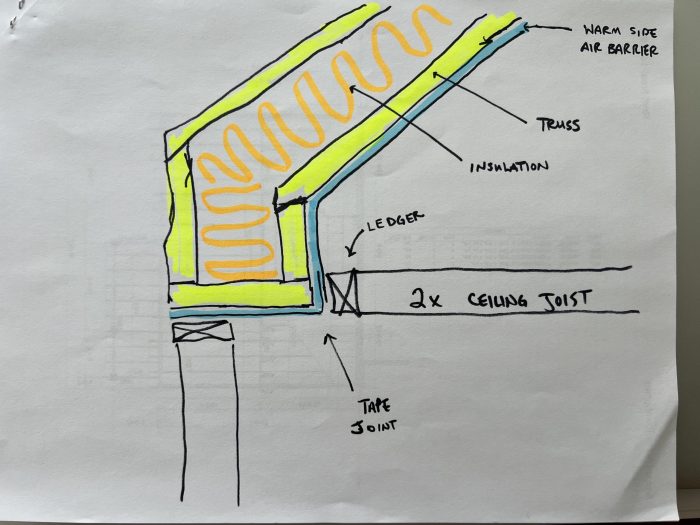 WARM SIDE
AIR BARRIER
TRUSS
INSULATION
LEDGER
2x CEILING JOIST
TAPE
JOINT